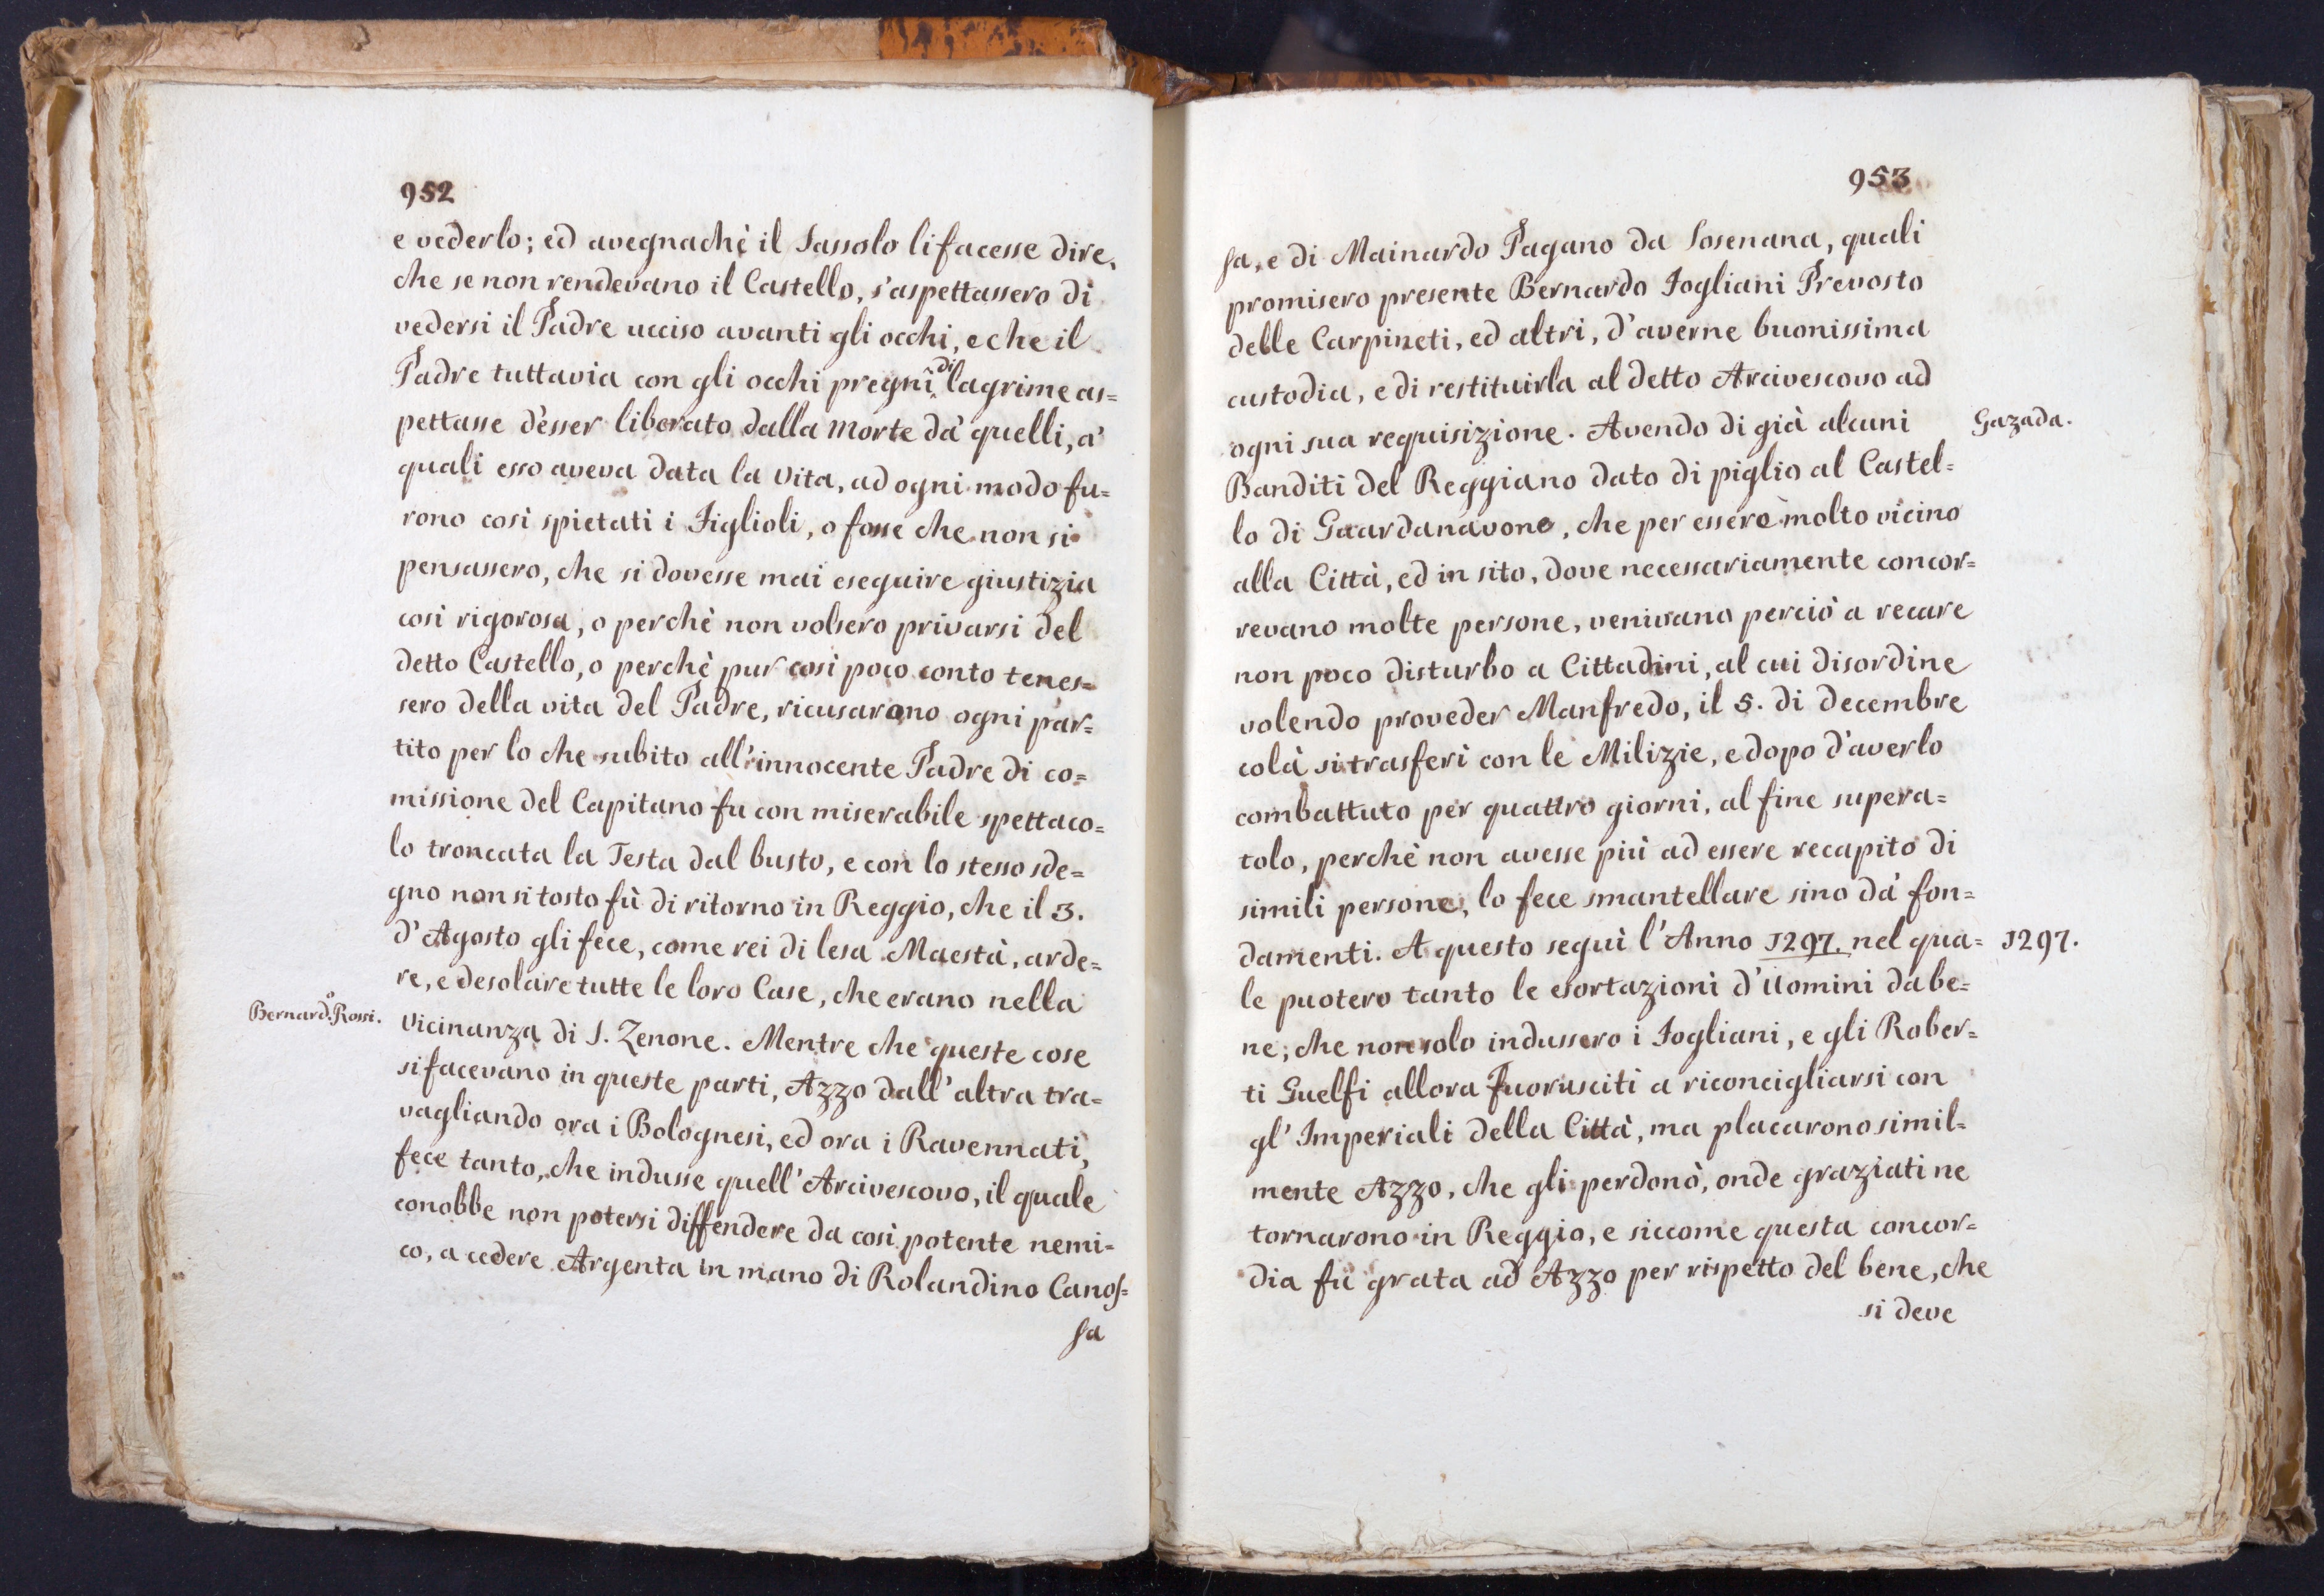 952
e vederlo; ed avegnachè il Sassolo li facesse dire,
che se non rendevano il Castello, s'aspettassero di
vedersi il Padre ucciso avanti gli occhi, e che il
Padre tuttavia con gli occhi pregni di lagrime as=
pettasse d'esser liberato dalla Morte da' quelli, a'
quali esso aveva data la vita, ad ogni modo fu=
rono così spietati i Figlioli, o fosse che non si
pensassero, che si dovesse mai eseguire giustizia
così rigorosa, o perchè non volsero privarsi del
detto Castello, o perchè pur così poco conto tenes=
sero della vita del Padre, ricusarono ogni par=
tito per lo che subito all'innocente Padre di co=
missione del Capitano fu con miserabile spettaco=
lo troncata la Testa dal busto, e con lo stesso sde=
gno non si tosto fù di ritorno in Reggio, che il 3.
d'Agosto gli fece, come rei di lesa Maestà, arde=
re, e desolare tutte le loro Case, che erano nella
Bernard.º Rossi.
vicinanza di S. Zenone. Mentre che queste cose
si facevano in queste parti, Azzo dall'altra tra=
vagliando ora i Bolognesi, ed ora i Ravennati,
fece tanto, che indusse quell'Arcivescovo, il quale
conobbe non potersi diffendere da così potente nemi=
co, a cedere Argenta in mano di Rolandino Canos=
sa
953
sa, e di Mainardo Pagano da Sosenana, quali
promisero presente Bernardo Fogliani Prevosto
delle Carpineti, ed altri, d'averne buonissima
custodia, e di restituirla al detto Arcivescovo ad
ogni sua requisizione. Avendo di già alcuni
Gazada.
Banditi del Reggiano dato di piglio al Castel=
lo di Guardanavone, che per essere molto vicino
alla Città, ed in sito, dove necessariamente concor=
revano molte persone, venivano perciò a recare
non poco disturbo a Cittadini, al cui disordine
volendo proveder Manfredo, il 5. di decembre
colà si trasferì con le Milizie, e dopo d'averlo
combattuto per quattro giorni, al fine supera=
tolo, perchè non avesse più ad essere recapito di
simili persone, lo fece smantellare sino da' fon=
damenti. A questo seguì l'Anno 1297. nel qua=
1297.
le puotero tanto le esortazioni d'uomini da be=
ne, che non solo indussero i Fogliani, e gli Rober=
ti Guelfi allora Fuorusciti a riconcigliarsi con
gl'Imperiali della Città, ma placarono simil=
mente Azzo, che gli perdonò, onde graziati ne
tornarono in Reggio, e siccome questa concor=
dia fu grata ad Azzo per rispetto del bene, che
si deve